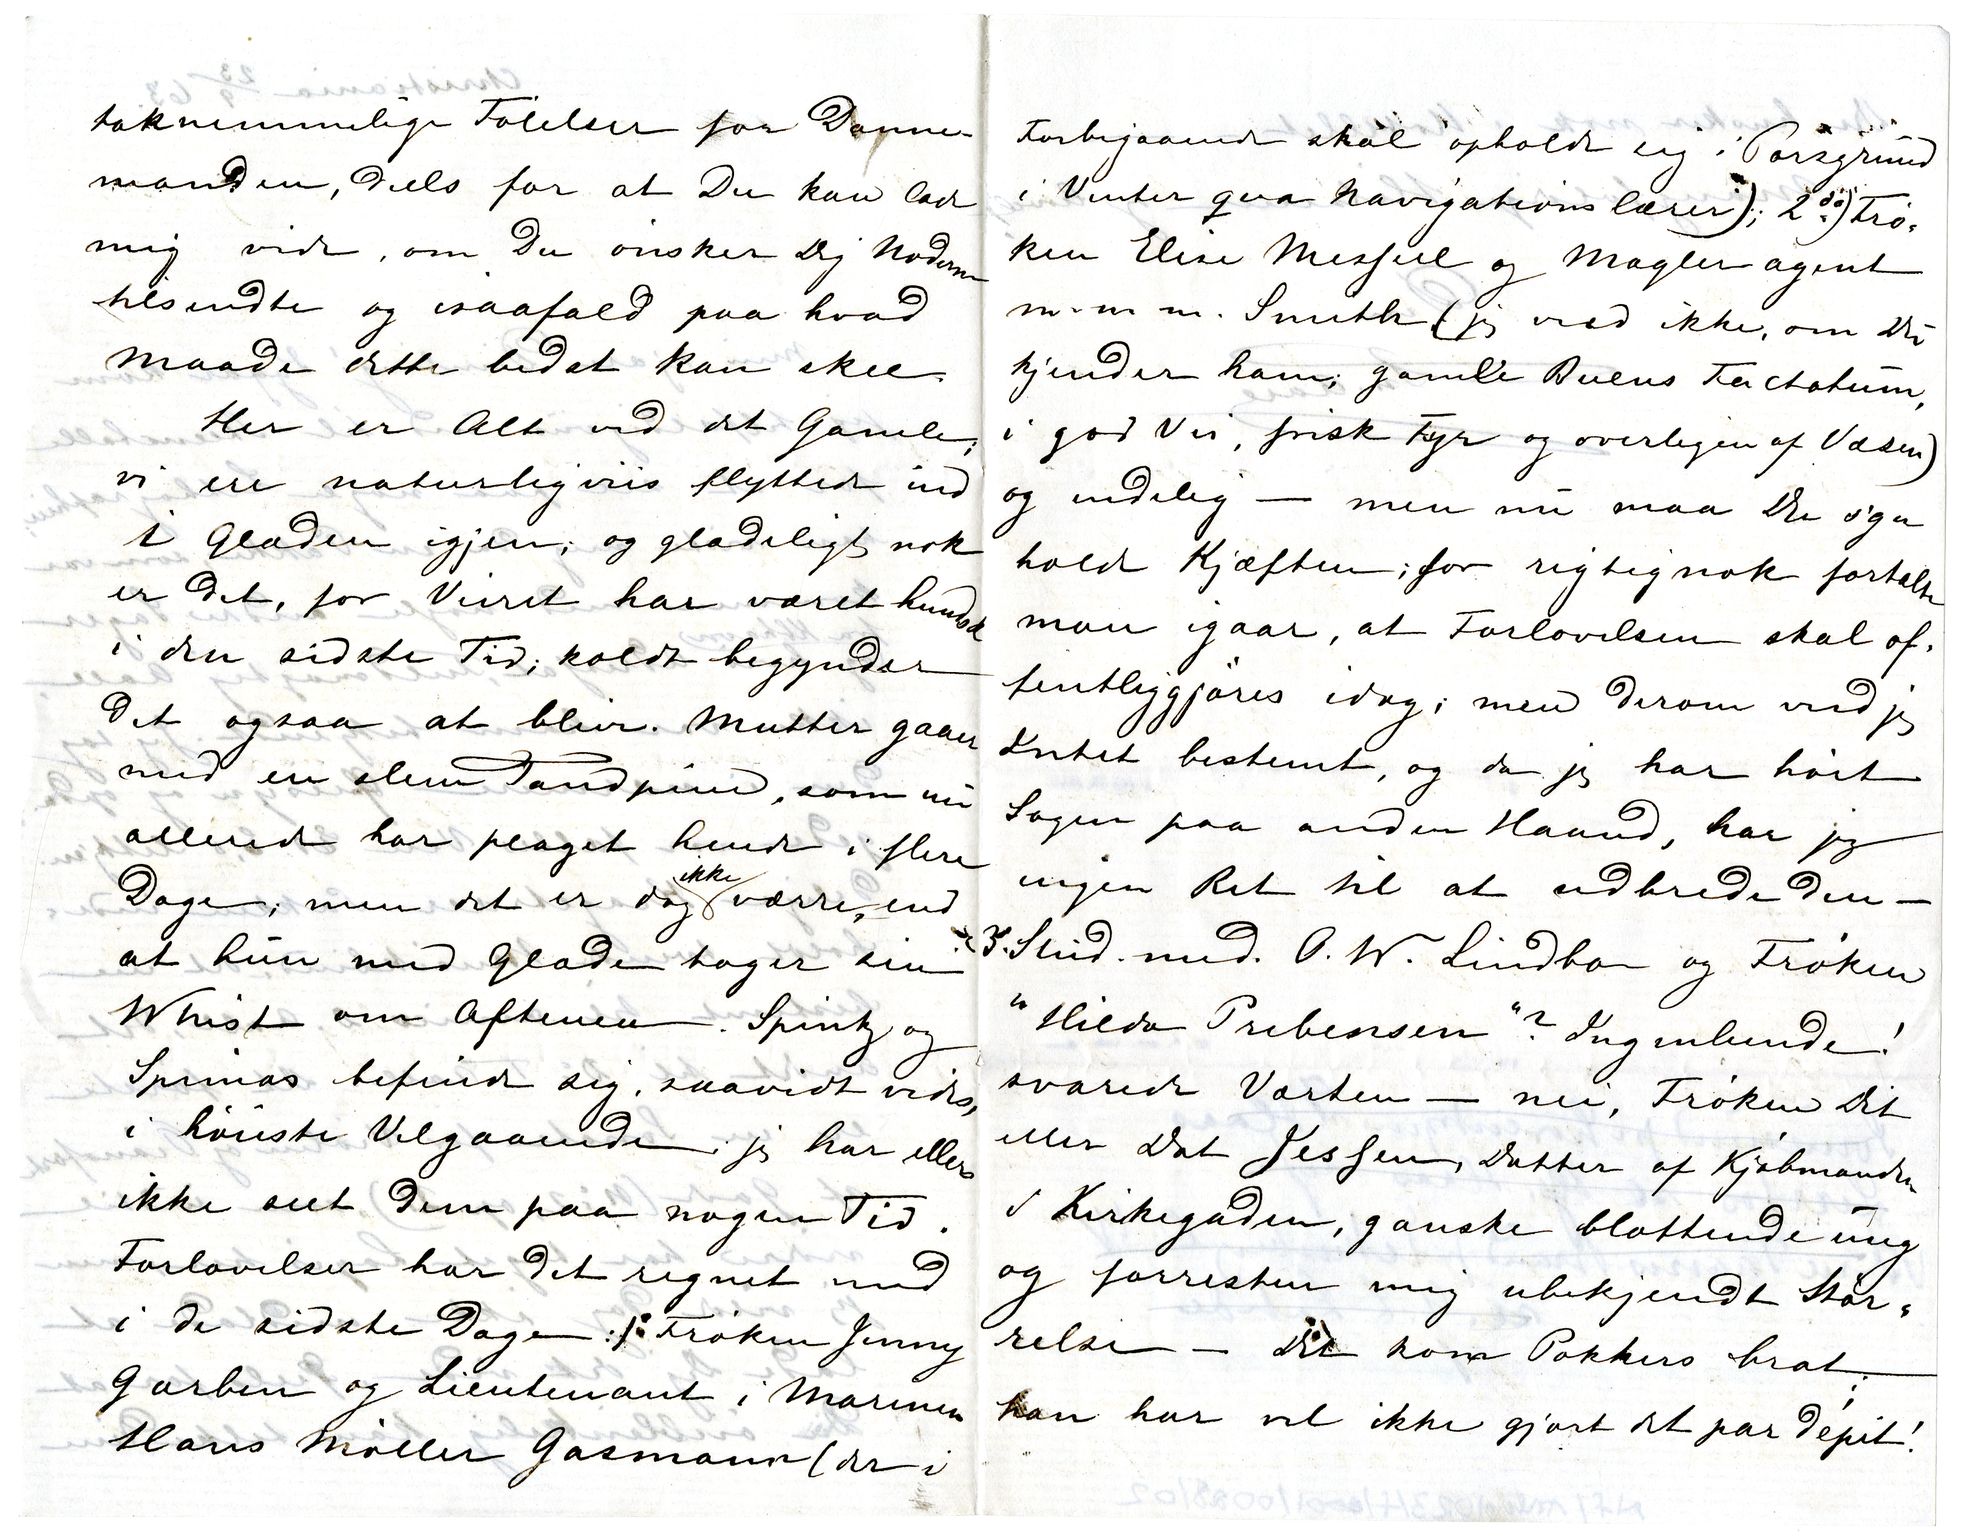 taknemmelige Følelser for Danne-
manden, deels for at Du kan lade
mig vide, om Du ønsker Dig Noderne
tilsendte og isaafald paa hvad
Maade dette bedst kan skee.
Her er Alt ved det Gamle;
vi ere naturligviis flyttede ind
i Gladen igjen; og gladeligt nok
er det, for Veiret har været hundsk
i den sidste Tid; koldt begynder
det ogsaa at blive. Mutter gaaer
med en slem Tandpine, som nu
allerede har plaget hende i flere
Dage; men det er dog ikke værre, end
at hun med Glæde tager sin
Whist om Aftenen. Spintz og
Spinas befinde sig, saavidt vides,
i høieste Velgaaende; jeg har ellers
ikke seet dem paa nogen Tid.
Forlovelser har det regnet med
i de sidste Dage: 1: Frøken Jenny
Garben og Lieutenant i Marinen
Hans Møller Gasmann (der i
Forbigaaende skal opholde sig i Porsgrund
i Vinter qua Navigationslærer); 2do) Frø-
ken Elise Messel og Mægler agent
m. m. m. Smith (jeg veed ikke, om Du
kjender ham; gamle Buens Factotum,
i god Vei, frisk Fyr og overlegen af Væsen)
og endelig — men nu maa Du øga
holde Kjæften; for rigtignok fortalte
man igaar, at Forlovelsen skal of-
fentliggjøres idag; men derom veed jeg
Intet bestemt, og da jeg har hørt
Sagen paa anden Haand, har jeg
ingen Ret til at udbrede den —
3. Stud. med. O. W. Lindbo og Frøken
"Hilda Prebensen"? Ingenlunde!
svarede Værten — nei, Frøken Dit
eller Dat Jessen, Datter af Kjøbmanden
i Kirkegaden, ganske blottende ung
og forresten mig ubekjendt Stør-
relse — Det kom Pokkers brat;
han har vel ikke gjort det par dépit!
Christiania 23/9 63